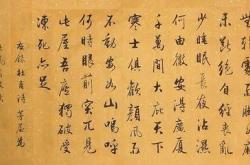 未斷絕自經喪亂
少睡眠長夜沾濕
何由徹安得廣廈
千萬間大庇天下
寒士俱歡顏風雨
不動安如山嗚呼
何時眼前突兀見
此屋吾廬獨破受
凍死亦足
右錄杜甫詩茅屋為